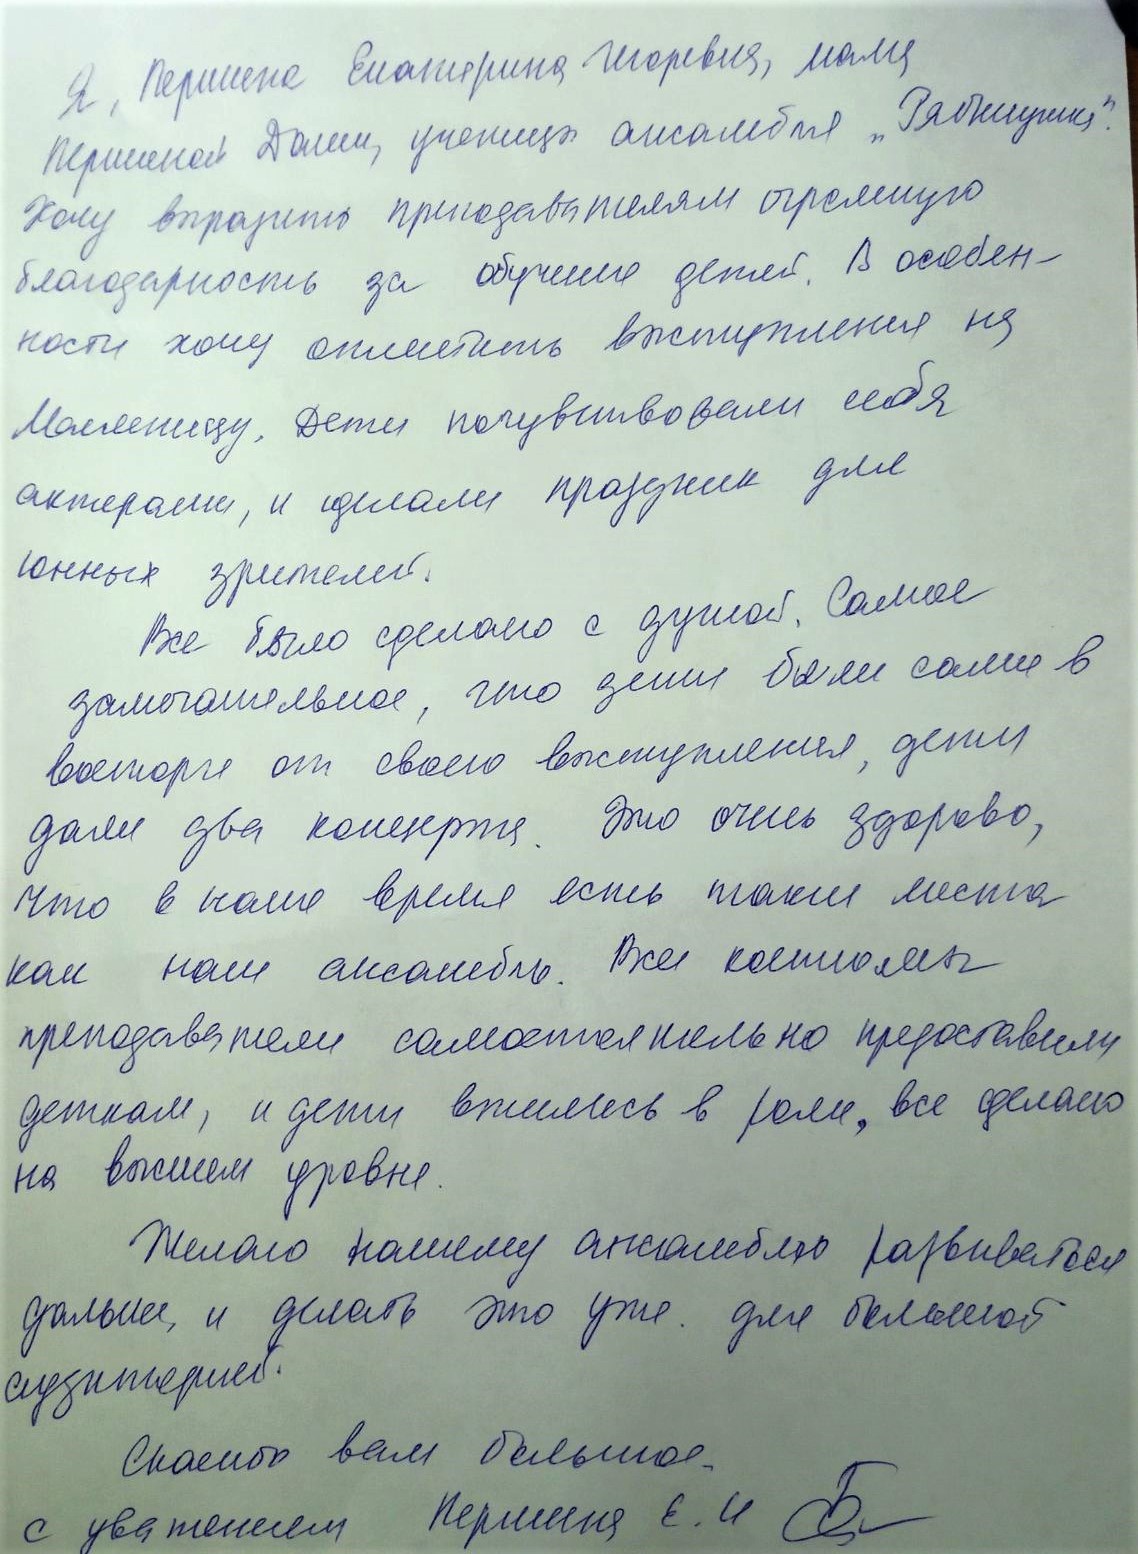 Я, Першина Екатерина Игоревна, мама
Першиной Даши, ученицы ансамбля „Рябинушка".
Хочу выразить преподавателям огромную
благодарность за обучение детей. В особен-
ности хочу отметить выступления на
Масленицу. Дети почувствовали себя
актерами, и сделали праздник для
юнных зрителей.
Все было сделано с душой. Самое
замечательное, что дети были сами в
восторге от своего выступления, дети
дали два концерта. Это очень здорово,
что в наше время есть такие места
как наш ансамбль. Все костюмы
преподаватели самостоятельно предоставили
деткам, и дети вжились в роли, все сделано
на высшем уровне.
Желаю нашему ансамблю развиваться
дальше, и делать это уже для большой
аудиторией.
Спасибо вам большое.
с уважением Першина Е. И